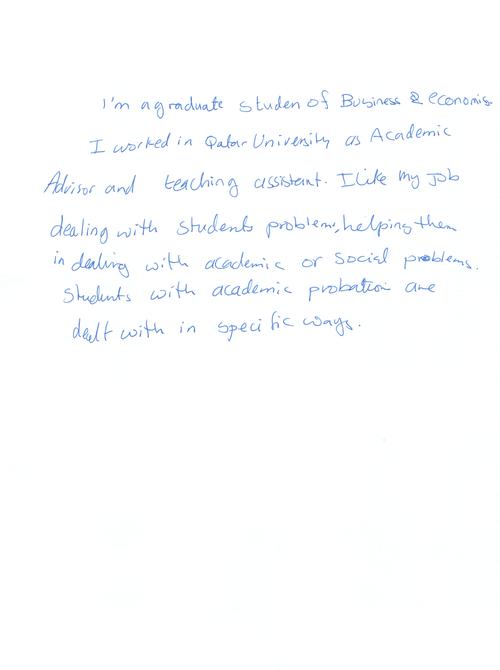 I'm a graduate studen of Business & economis
I worked in Qatar University as Academic
Advisor and teaching assistant. I like my Job
dealing with students problems, helping them
in dealing with academic or social problems.
Students with academic probation are
dealt with in specific ways.